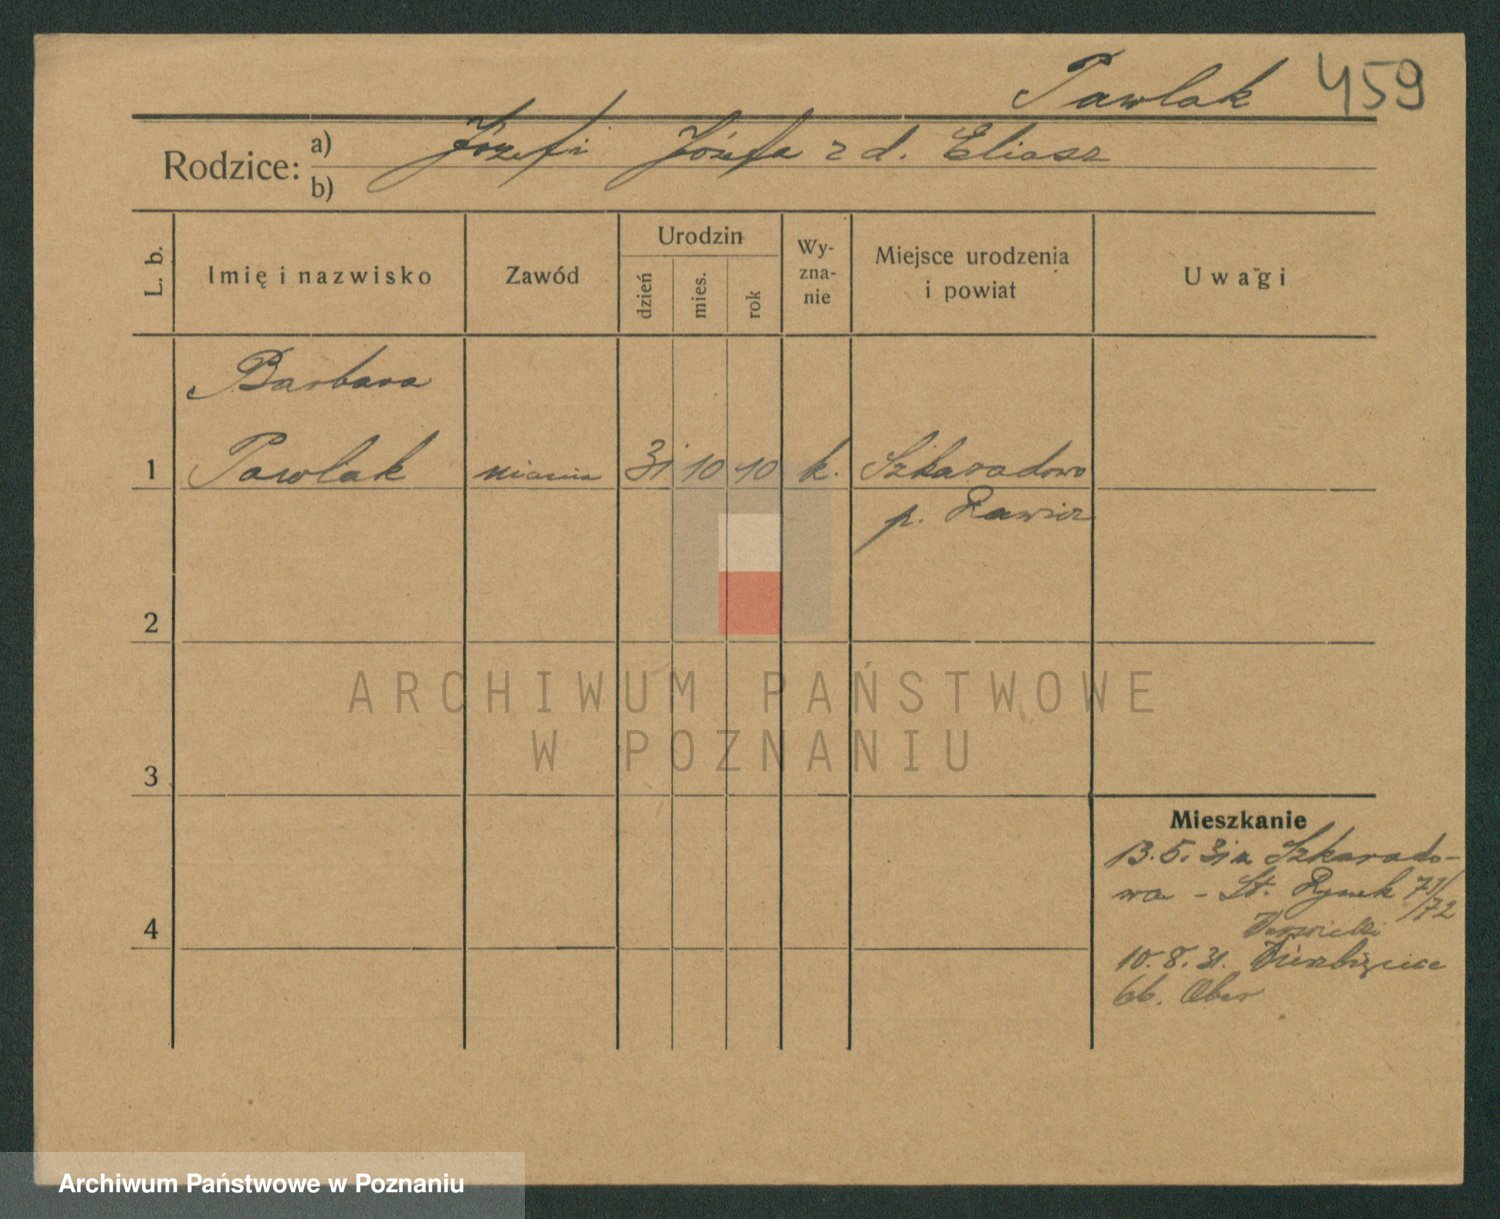 Pawlak 459
Rodzice: a) Józef i Józefa z d. Eliasz
b)
L. b.
Imię i nazwisko
Zawód
Urodzin
dzień
mies.
rok
Wy-
zna-
nie
Miejsce urodzenia
i powiat
Uwagi
Barbara
1 Pawlak niania 31 10 10 k. Szkaradowo
p. Rawicz
2
3
4
Mieszkanie
13.5.31 z Szkarado-
wa - St. Rynek 71/
/72
10.8.31. Wierzbięcice
66. Ober
ARCHIWUM PAŃSTWOWE
W POZNANIU
Archiwum Państwowe w Poznaniu